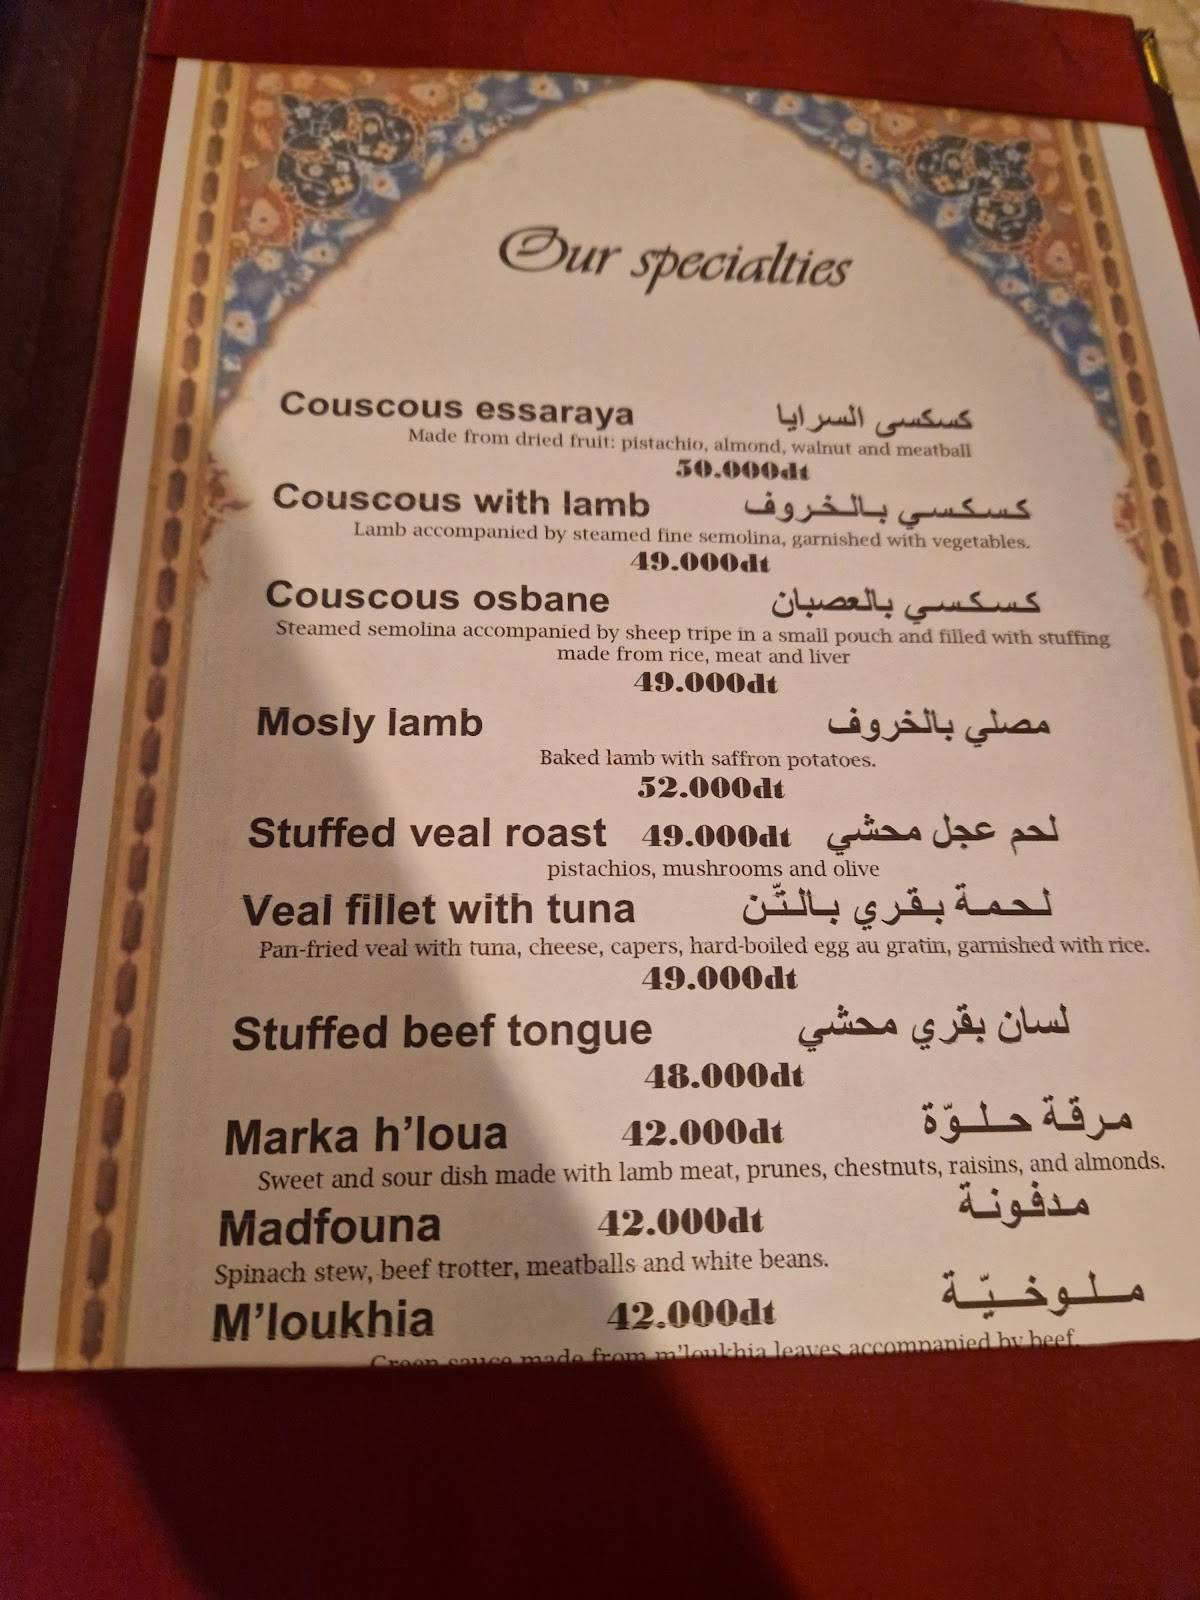 Our specialties
Couscous essaraya كسكسى السرايا
Made from dried fruit: pistachio, almond, walnut and meatball
50.000dt
Couscous with lamb كسكسي بالخروف
Lamb accompanied by steamed fine semolina, garnished with vegetables.
49.000dt
Couscous osbane كسكسي بالعصبان
Steamed semolina accompanied by sheep tripe in a small pouch and filled with stuffing
made from rice, meat and liver
49.000dt
Mosly lamb مصلي بالخروف
Baked lamb with saffron potatoes.
52.000dt
Stuffed veal roast 49.000dt لحم عجل محشي
pistachios, mushrooms and olive
Veal fillet with tuna لحمة بقري بالتّن
Pan-fried veal with tuna, cheese, capers, hard-boiled egg au gratin, garnished with rice.
49.000dt
Stuffed beef tongue لسان بقري محشي
48.000dt
Marka h'loua 42.000dt مرقة حلوّة
Sweet and sour dish made with lamb meat, prunes, chestnuts, raisins, and almonds.
Madfouna 42.000dt مدفونة
Spinach stew, beef trotter, meatballs and white beans.
M'loukhia 42.000dt ملوخيّة
Green sauce made from m'loukhia leaves accompanied by beef.